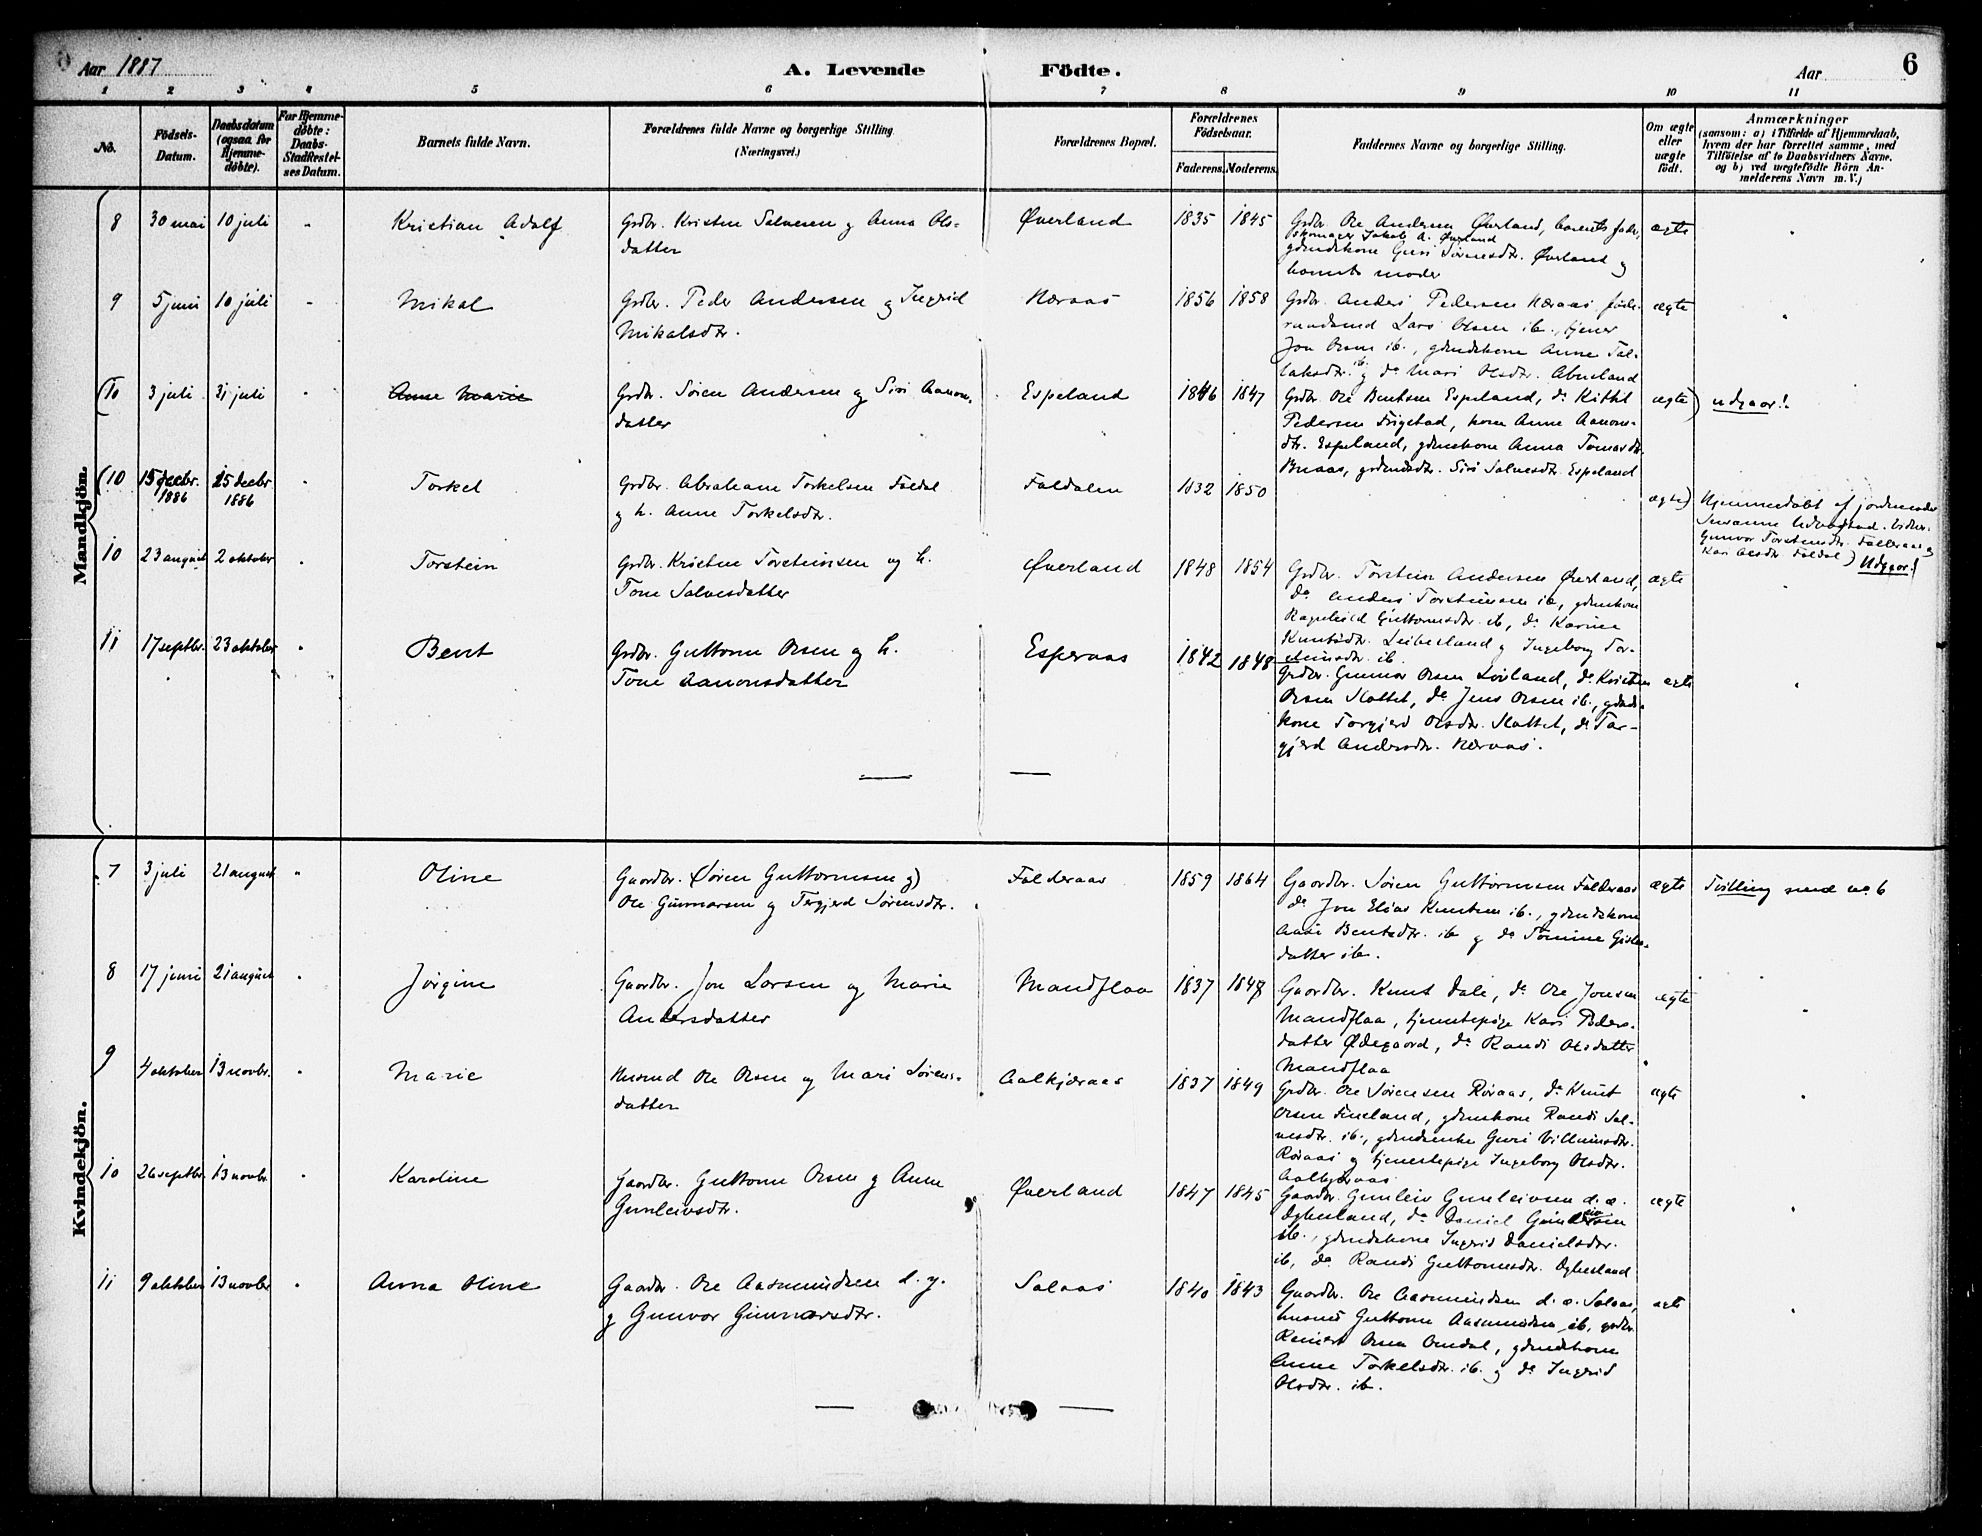 Aar 1887
A. Levende Födte.
Aar
6
1 2 3 4 5 6 7 8 9 10 11
No.
Födsels-Datum.
Daabsdatum (ogsaa for Hjemmedöbte).
For Hjemmedöbte: Daabs-Stadfæstelses Datum.
Barnets fulde Navn.
Forældrenes fulde Navne og borgerlige Stilling. (Næringsvei.)
Forældrenes Bopæl.
Forældrenes Födselsaar.
Faderens. Moderens.
Faddernes Navne og borgerlige Stilling.
Om ægte eller uægte födt.
Anmærkninger
(saasom: a) i Tilfælde af Hjemmedaab, hvem der har forrettet samme, med Tilföielse af to Daabsvidners Navne, og b) ved uægtefödte Börn Anmelderens Navn m. V.)
Mandkjön.
8 30 mai 10 juli " Kristian Adolf
Grdbr. Kristen Salvesen og Anna Olsdatter
Øverland 1835 1845
Grdbr. Ole Andersen Øverland, barnets fader,
skomager Jakob A. Øverland
gdmdskone Guri Sørensdtr. Øverland og
barnets moder
ægte "
9 5 juni 10 juli " Mikal
Grdbr. Peder Andersen og Ingrid
Mikalsdtr.
Næraas 1856 1858
Grdbr. Anders Pedersen Næraas, føderaadsmd Lars Olsen ib., tjener
Jon Olsen ib., gdmdskone Anne Tallaksdtr. ib. og do Mari Olsdtr. Abusland
ægte "
(10 3 juli 31 juli " Anne Marie
Grdbr. Søren Andersen og Siri Aanonsdatter
Espeland 1846 1847
Grdbr. Ole Bentsen Espeland, do Kittil
Pedersen Frigstad, kone Anne Aanonsdtr. Espeland, gdmdskone Anna Tomasdtr.
Bruaas, grdmdsdtr. Siri Salvesdtr. Espeland
ægte) udgaar!
(10 15 decbr. 1886 25 decbr 1886 " Torkel
Grdbr. Abraham Torkelsen Faldal
og h. Anne Torkelsdtr.
Faldalen 1832 1850
ægte) Hjemmedøbt af jordemoder
Susanne Udbøstad. Vidner:
Gunvor Torsteinsdtr. Falderaas og
Kari Olsdtr. Faldal) Udgaar!
10 23 august 2 oktober " Torstein
Grdbr. Kristen Torsteinsen og h.
Tone Salvesdatter
Øverland 1848 1854
Grdbr. Torstein Andersen Øverland,
do Anders Torsteinsen ib., gdmdskone
Ragnhild Guttormsdtr. ib, do Karine
Knutsdtr. Leibesland og Ingeborg Torsteinsdtr. ib.
ægte "
11 17 septbr. 23 oktober " Bent
Grdbr. Guttorm Olsen og h.
Tone Aanonsdatter
Esperaas 1842 1848
Grdbr. Gunnar Olsen Løiland, do Kristen
Olsen Slottet, do Jens Olsen ib., gdmdskone Torgjerd Olsdtr. Slottet, do Torgjerd Andersdtr. Næraas.
ægte "
Kvindekjön.
7 3 juli 21 august " Oline
Gaardbr. (Søren Guttormsen og)
Ole Gunnarsen og Torgjerd Sørensdtr.
Falderaas 1859 1864
Gaardbr. Søren Guttormsen Falderaas
do Jon Elias Knutsen ib., gdmdskone
Aase Bentsdtr. ib og do Tomine Gislesdatter ib.
ægte Tvilling med no. 6
8 17 juni 21 august " Jørgine
Gaardbr. Jon Larsen og Marie
Andersdatter
Mandflaa 1837 1847
Gaardbr. Knut Dale, do Ole Jonsen
Mandflaa, tjenestepige Kari Pedersdatter Ødegaard, do Randi Olsdatter
Mandflaa
ægte "
9 4 oktober 13 novbr. " Marie
Husmd Ole Olsen og Mari Sørensdatter
Aalkjæraas 1837 1849
Grdbr. Ole Sørensen Røiaas, do Knut
Olsen Fineland, gdmdskone Randi Salvesdtr. ib., gdmdsenke Guri Villumsdtr.
Røiaas og tjenestepige Ingeborg Olsdtr.
Aalkjæraas
ægte "
10 26 septbr. 13 novbr. " Karoline
Gaardbr. Guttorm Olsen og Anne
Gunleivsdtr.
Øverland 1847 1845
Gaardbr. Gunleiv Gunleivsen d. æ.
Øghusland, do Daniel Gunleivsen
ib., gdmdskone Ingrid Danielsdtr.
ib, do Randi Guttormsdtr. Øghusland
ægte "
11 9 oktober 13 novbr " Anna Oline
Gaardbr. Ole Aasmundsen d. y.
og Gunvor Gunnarsdtr.
Salaas 1840 1843
Gaardbr. Ole Aasmundsen d. æ. Salaas,
husmd Guttorm Aasmundsen ib, grdbr.
Reinert Olsen Omdal, gdmdskone
Anne Torkelsdtr. ib. og do Ingrid
Olsdtr. ib.
ægte "